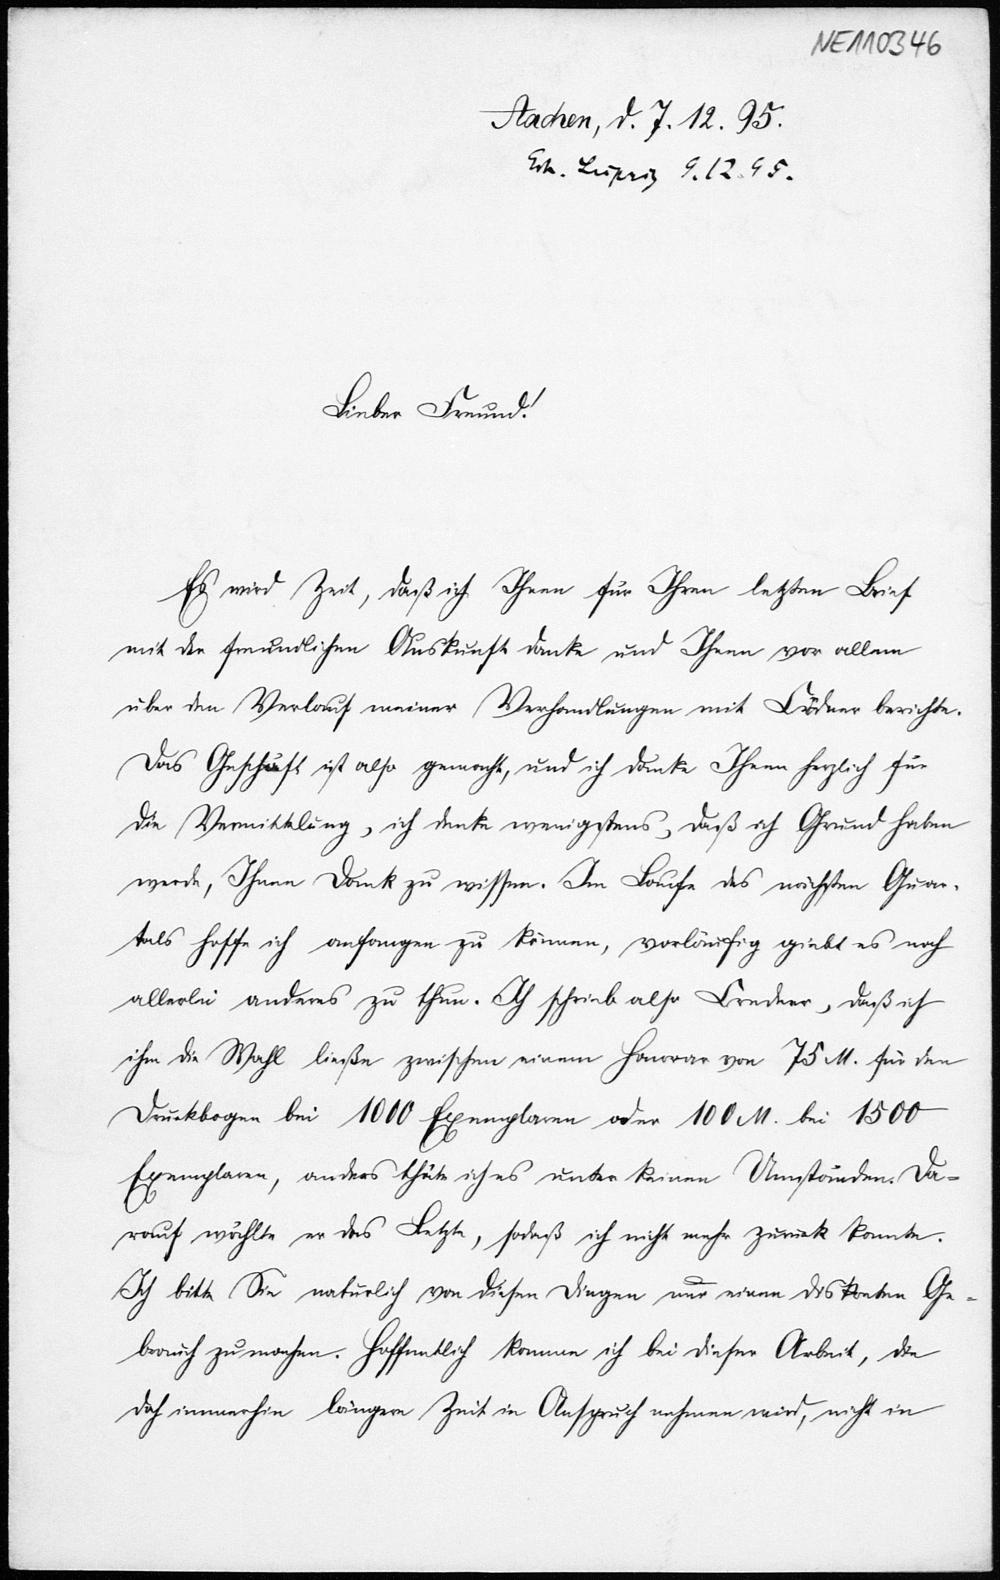 NE110346
Aachen, d. 7. 12. 95.
Erh. Leipzig 9.12.95.
Lieber Freund!
Es wird Zeit, daß ich Ihnen für Ihren letzten Brief
mit der freundlichen Auskunft danke und Ihnen vor allem
über den Verlauf meiner Verhandlungen mit Credner berichte.
Das Geschäft ist also gemacht, und ich danke Ihnen herzlich für
die Vermittelung, ich denke wenigstens, daß ich Grund haben
werde, Ihnen Dank zu wissen. Im Laufe des nächsten Quar-
tals hoffe ich anfangen zu können, vorläufig giebt es noch
allerlei anderes zu thun. Ich schrieb also Credner, daß ich
ihm die Wahl ließe zwischen einem Honorar von 75 M. für den
Druckbogen bei 1000 Exemplaren oder 100 M. bei 1500
Exemplaren, anders thäte ich es unter keinen Umständen. Da-
rauf wählte er das Letzte, sodaß ich nicht mehr zurück konnte.
Ich bitte Sie natürlich von diesen Dingen nur einen diskreten Ge-
brauch zu machen. Hoffentlich komme ich bei dieser Arbeit, die
doch immerhin längere Zeit in Anspruch nehmen wird, nicht in